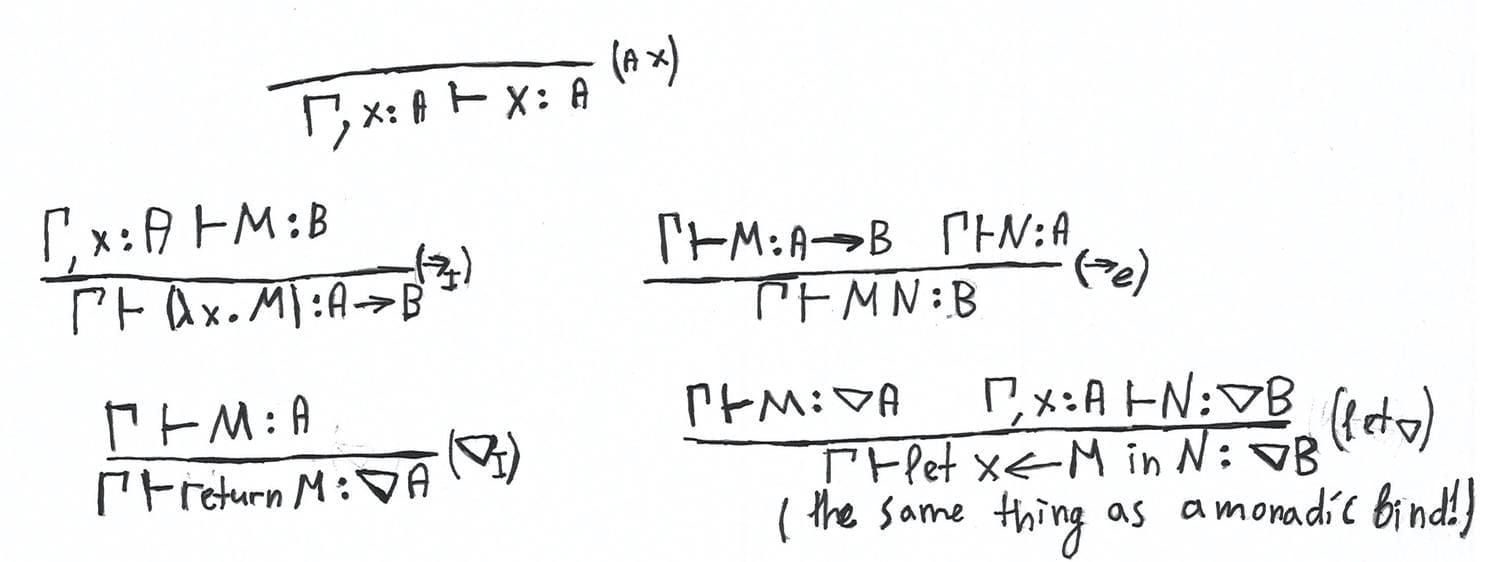 (Ax)
Γ, x: A ⊢ x: A
Γ, x: A ⊢ M: B
(→I)
Γ ⊢ (λx. M): A → B
Γ ⊢ M: A → B Γ ⊢ N: A
(→e)
Γ ⊢ M N: B
Γ ⊢ M: A
(▽I)
Γ ⊢ return M: ▽A
Γ ⊢ M: ▽A Γ, x: A ⊢ N: ▽B
(let▽)
Γ ⊢ let x ← M in N: ▽B
(the same thing as a monadic bind!)